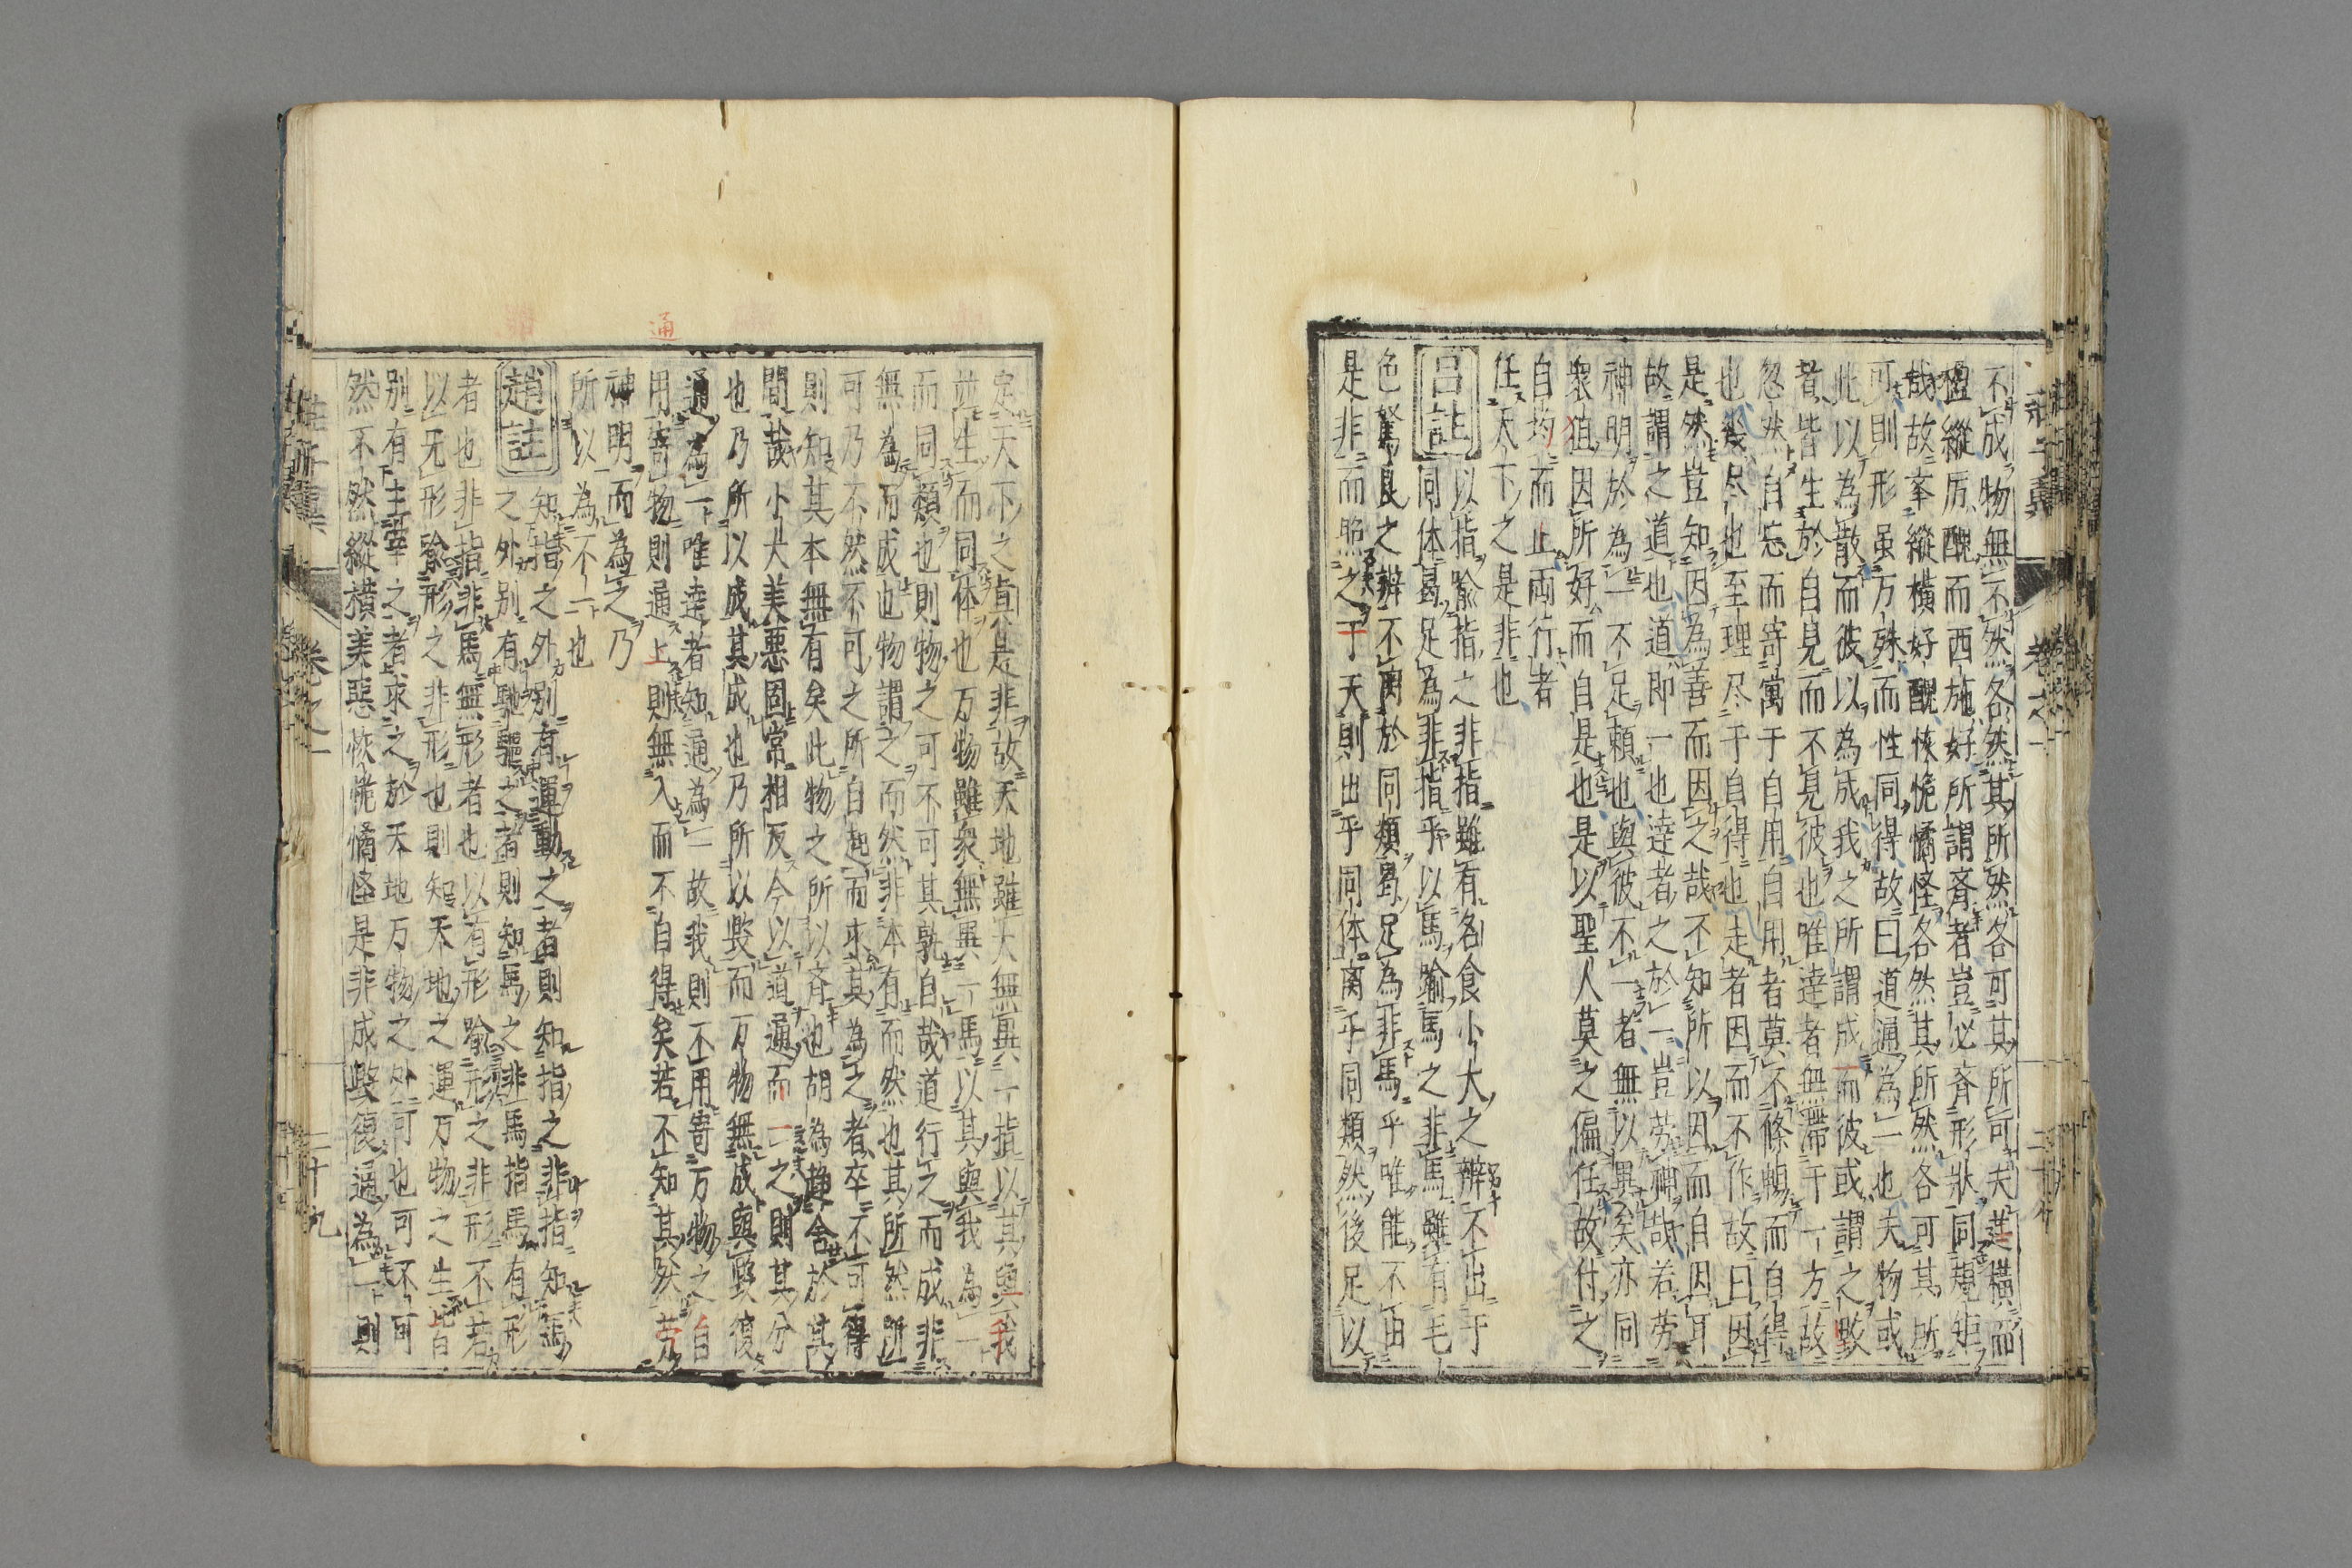 不成物無不然各然其所然各可其所可夫莛橫而
楹縱厉醜而西施好所謂斉者豈必斉形狀同規矩
哉故挙縱橫好醜恢恑憰怪各然其所然各可其所
可則形虽万殊而性同得故曰道通為一也夫物或
此以為散而彼以為成我之所謂成而彼或謂之毀
者皆生於自見而不見彼也唯達者無滞于一方故
忽然自忘而寄寓于自用自用者莫不條暢而自得
也幾尽也至理尽于自得也走者因而不作故曰因
是然豈知因為善而因之哉不知所以因而自因耳
故謂之道也道即一也達者之於一豈労神哉若労
神明於為一不足頼也與彼不一者無以異矣亦同
衆狙因所好而自是也是以聖人莫之偏任故付之
自均而止両行者
任天下之是非也
呂註 以指喻指之非指雖有名食小大之辨不出于
同体曷足為非指乎以馬喻馬之非馬雖有毛
色駑良之辨不离於同類曷足為非馬乎唯能不由
是非而照之于天則出乎同体离乎同類然後足以
定天下之真是非故天地雖大無異一指以其與我
並生而同体也万物雖衆無異一馬以其與我為一
而同類也則物之可不可其孰自哉道行之而成非
無為而成也物謂之而然非本有而然也其所然所
可乃不然不可之所自起而求其為之者卒不可得
則知其本無有矣此物之所以斉也胡為趣舍於其
間哉小大美悪固常相反今以道通而一之則其分
也乃所以成其成也乃所以毀而万物無成與毀復
通為一唯達者知通為一故我則不用寄万物之自
用寄物則通上則無入而不自得矣若不知其然労
神明而為之乃
所以為不一也
趙註 知指之外別有運動之者則知指之非指知馬
之外別有馳驅之者則知馬之非馬指馬有形
者也非指非馬無形者也以有形喻形之非形不若
以无形喻形之非形也則知天地之運万物之生皆
別有主宰之者求之於天地万物之外可也可不可
然不然縱横美悪恢恑憰怪是非成毀復通為一則
通
卷之一
二十九